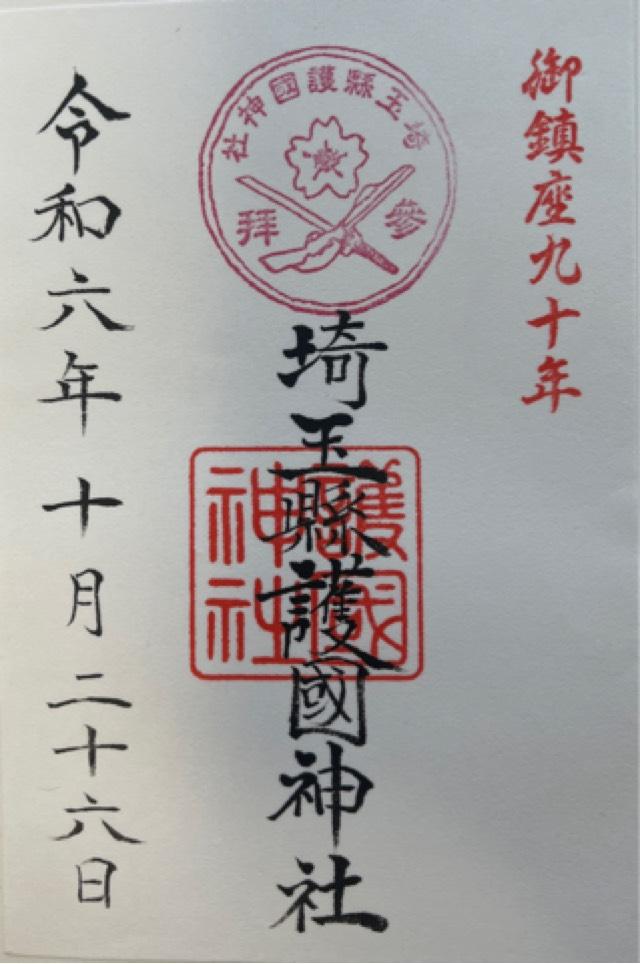 御鎮座九十年
埼玉縣護國神社
參拜
埼玉縣護國神社
護國
神社
令和六年十月二十六日